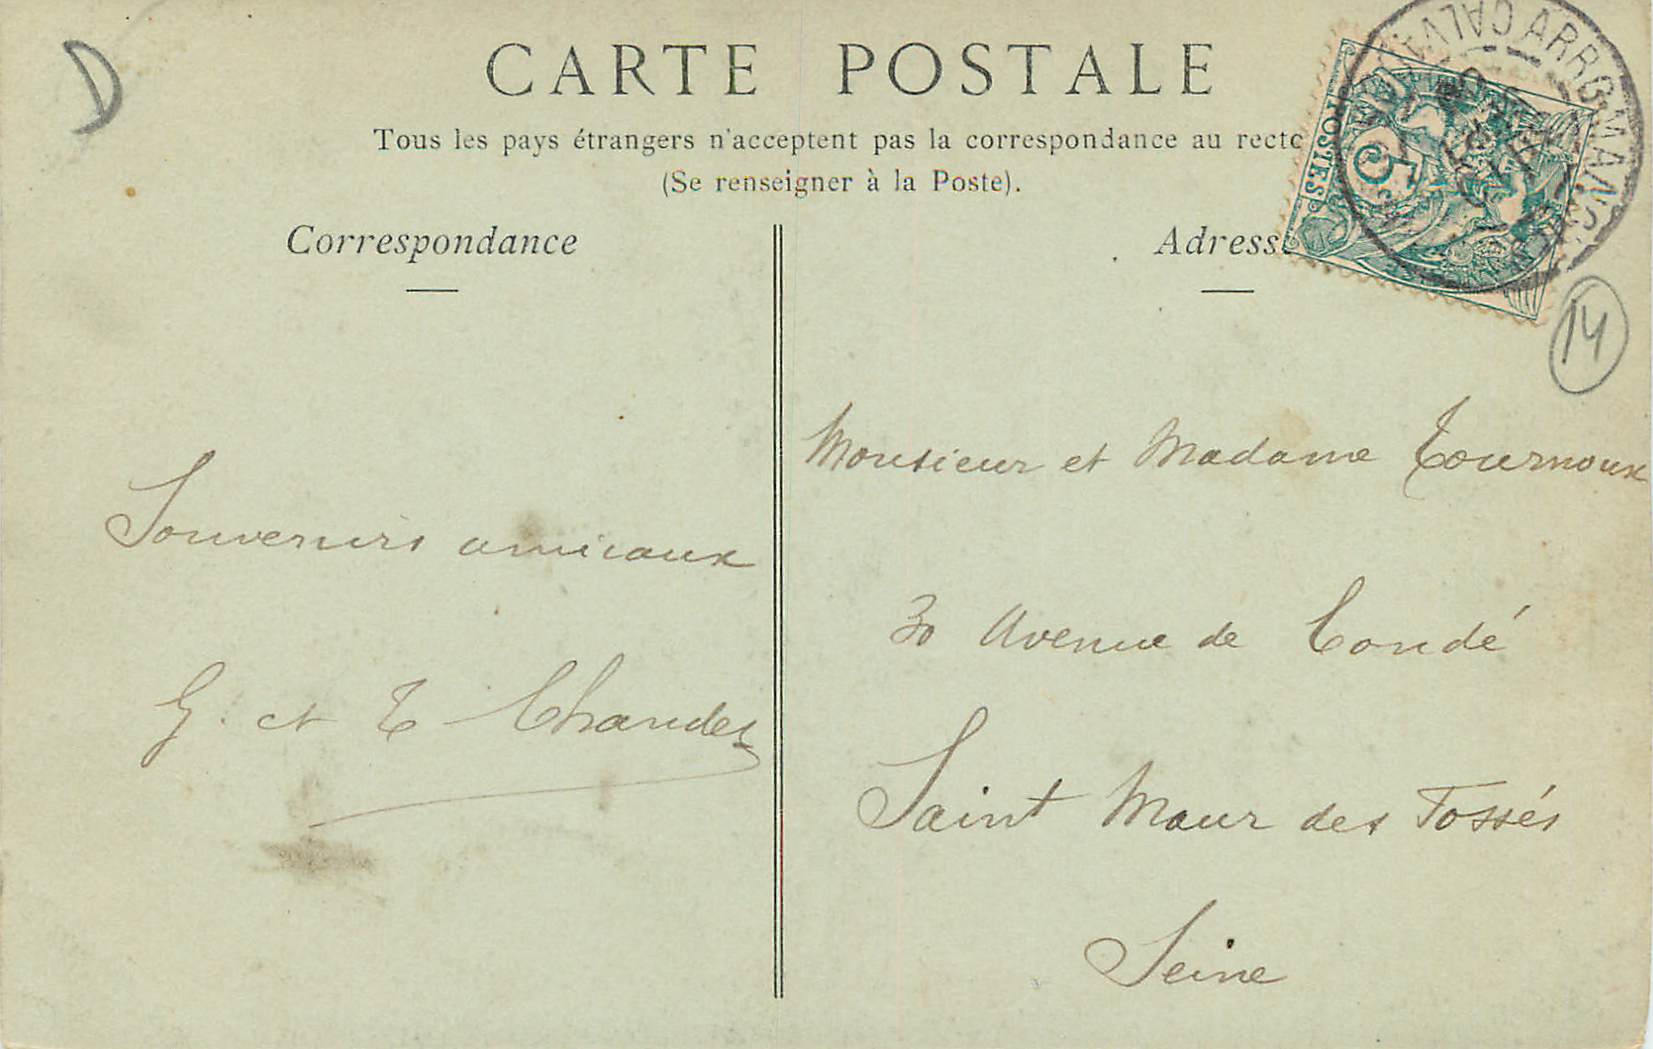 D
CARTE POSTALE
Tous les pays étrangers n'acceptent pas la correspondance au recto
(Se renseigner à la Poste).
Correspondance
Adresse
POSTES
5
ARROMANCHES
CALVADOS
14
Souvenirs amicaux
G. et E Chandez
Monsieur et Madame Tournoux
30 Avenue de Condé
Saint Maur des Fossés
Seine